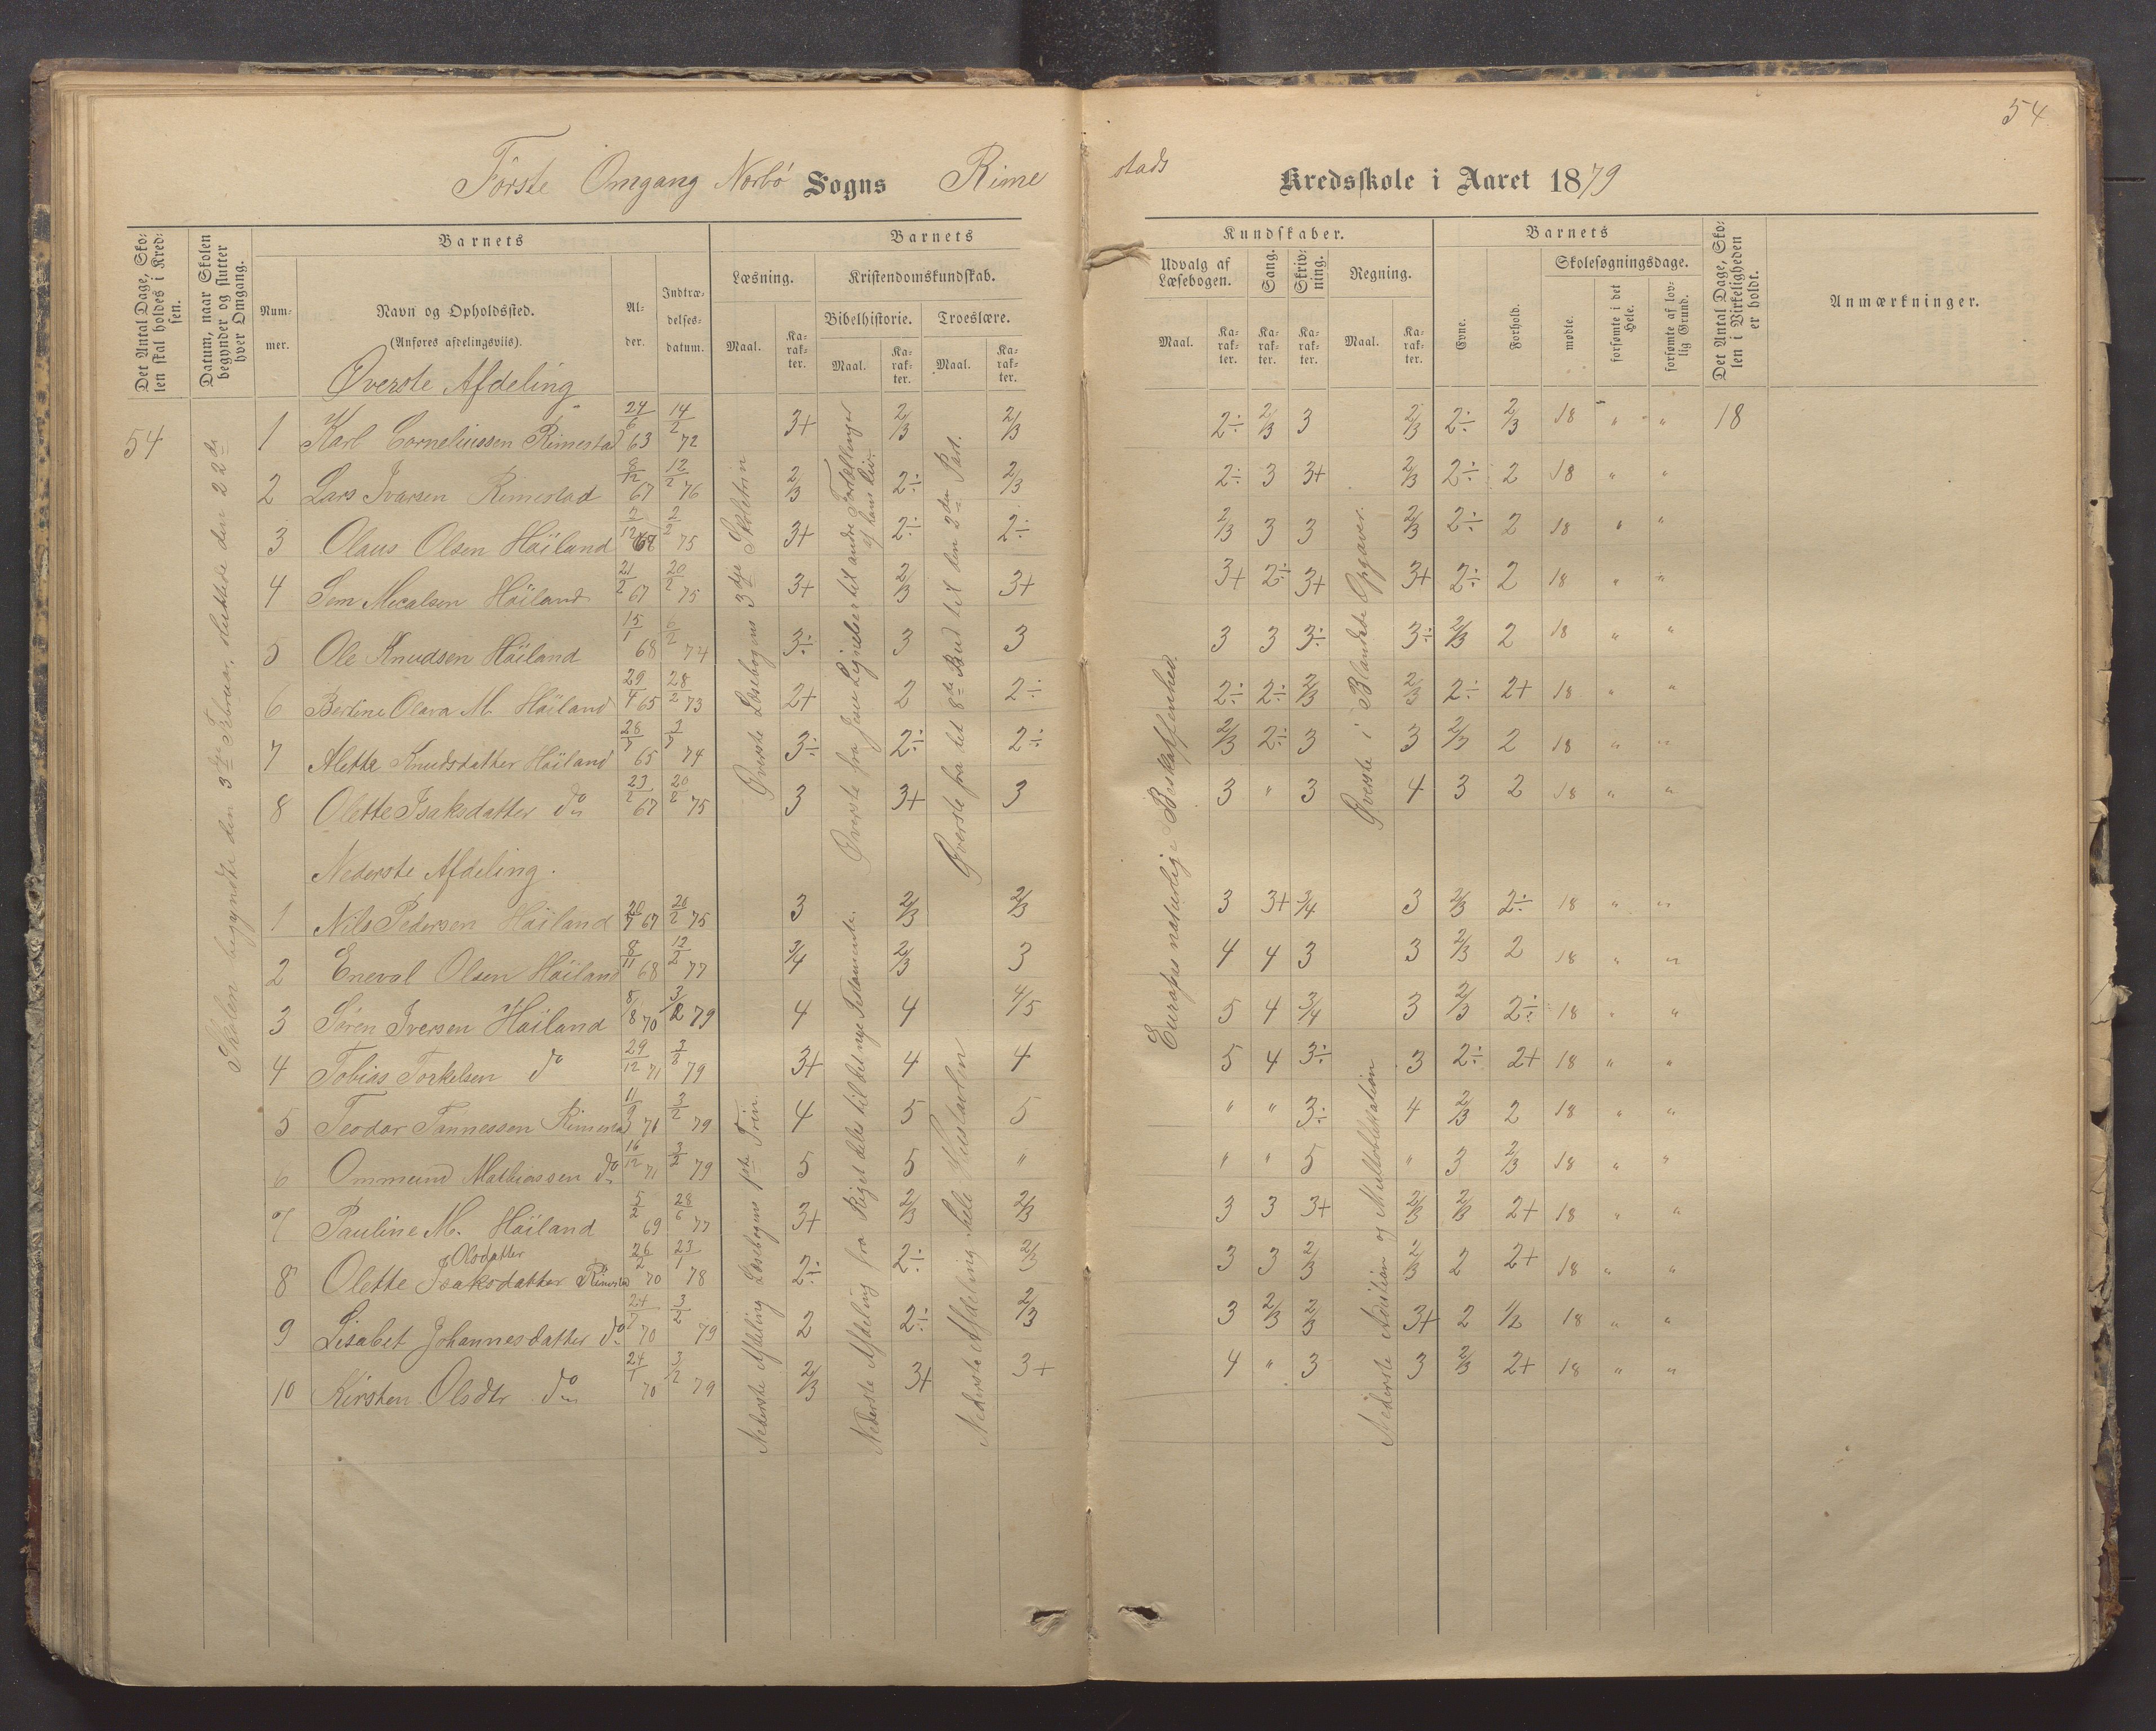 54
Förste Omgang Norbö Sogns Rimestads Kredsskole i Aaret 1879
Det Antal Dage, Skolen skal holdes i Kredsen.
Datum, naar Skolen begynder og slutter hver Omgang.
Barnets
Nummer.
Navn og Opholdssted.
(Anføres afdelingsviis).
Alder.
Indtrædelsesdatum.
Barnets Kundskaber.
Læsning.
Maal.
Karakter.
Kristendomskundskab.
Bibelhistorie.
Maal.
Karakter.
Troeslære.
Maal.
Karakter.
Udvalg af Læsebogen.
Maal.
Karakter.
Sang.
Karakter.
Skrivning.
Karakter.
Regning.
Maal.
Karakter.
Barnets
Evne.
Forhold.
Skolesøgningsdage.
mødte.
forsømte i det Hele.
forsømte af lovlig Grund.
Det Antal Dage, Skolen i Virkeligheden er holdt.
Anmærkninger.
Øverste Afdeling
54 1 Karl Corneliussen Rimestad 24/6 63 14/2 72 3+ 2/3 2/3 2÷ 2/3 3 2/3 2÷ 2/3 18 " " 18
2 Lars Ivarsen Rimestad 8/12 67 12/2 76 2/3 2÷ 2/3 2÷ 3 3+ 2/3 2÷ 2 18 " "
3 Olaus Olsen Höiland 75 3+ 2÷ 2÷ 2/3 3 3 2/3 2÷ 2 18 " "
4 Sem Micalsen Höiland 21/2 67 20/2 75 3+ 2/3 3+ 3+ 2÷ 3+ 3+ 2÷ 2 18 " "
5 Ole Knudsen Höiland 15/1 68 6/2 74 3÷ 3 3 3 3 3÷ 3÷ 2/3 2 18 " "
6 Bertine Olava M. Höiland 29/4 65 28/2 73 2+ 2 2÷ 2÷ 2÷ 2/3 2/3 2÷ 2+ 18 " "
7 Alette Knudsdatter Höiland 28/7 65 74 3÷ 2÷ 2÷ 2/3 2÷ 3 3 2/3 2 18 " "
8 Olette Isaksdatter do 23/2 67 20/2 75 3 3+ 3 3 " 3 4 3 2 18 " "
Nederste Afdeling.
1 Nils Pedersen Höiland 20/7 67 20/2 75 3 2/3 2/3 3 3+ 3/4 3 2/3 2÷ 18 " "
2 Eneval Olsen Höiland 8/11 68 12/2 77 3/4 2/3 3 4 4 3 3 2/3 2 18 " "
3 Sören Iversen Höiland 8/8 70 3/2 79 4 4 4/5 5 4 3/4 3 2/3 2÷ 18 " "
4 Tobias Torkelsen do 29/12 71 79 3+ 4 4 5 4 3÷ 3 2÷ 2+ 18 " "
5 Teodor Tønnessen Rimestad 11/9 71 3/2 79 4 5 5 " " 3÷ 4 2/3 2 18 " "
6 Ommund Mathiassen do 16/12 71 3/2 79 5 5 " " " 5 " 3 2/3 18 " "
7 Pauline M. Höiland 5/2 69 77 3+ 2/3 2/3 3 3 3+ 2/3 2/3 2+ 18 " "
Olsdatter
8 Olette Isaksdatter Rimestad 26/2 70 23/1 78 2÷ 2÷ 2/3 3 3 2/3 2/3 2 2+ 18 " "
9 Lisabet Johannesdatter do 24/7 70 3/2 79 2 2÷ 2/3 3 2/3 2/3 3+ 2 1/2 18 " "
10 Kirsten Olsdtr do 24/1 70 3/2 79 2/3 3+ 3+ 4 " 3 3 2/3 2+ 18 " "
Skolen begyndte den 3die Februar, sluttede den 22de
Øverste Læsebogens 3die Skoletrin
Nederste Afdeling Læsebogens 1ste Trin.
Øverste fra Jesu Lignelser til andre Fortællinger af hans Liv.
Nederste Afdeling fra Riget deles til det nye Testamente.
Øverste fra det 8de Bud til den 2den Part.
Nederste Afdeling hele Huustavlen
Europas naturlige Beskaffenhed.
Øverste i Blandede Opgaver.
Nederste Adition og Multoblikation